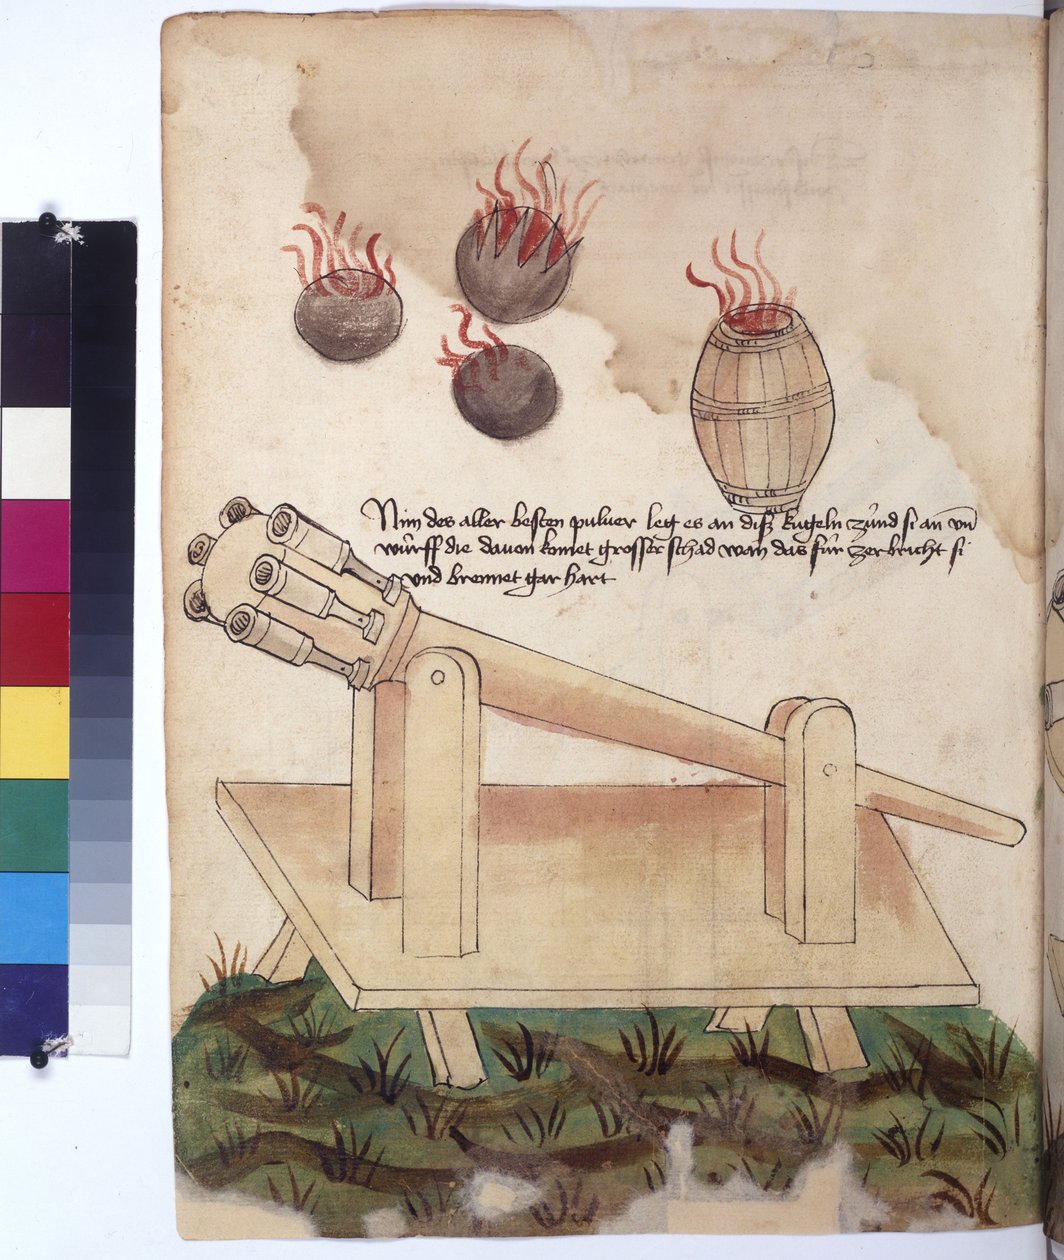 Nim des aller besten pulver leg es an disz kugeln zünd si an vnd
würff die dauon komet grosser schad wan das für zerbricht si
vnd brennet gar hart